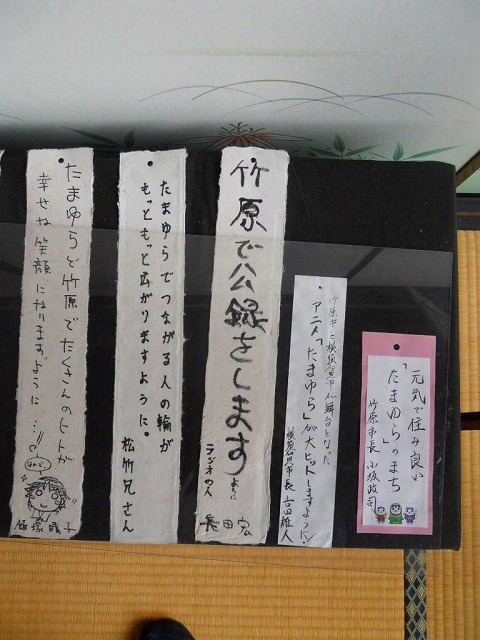 元気で住み良い
「たまゆら」のまち
竹原市長 小坂政司
竹原市と横須賀市が舞台となった
アニメ「たまゆら」が大ヒットしますように!
横須賀市長 吉田雄人
竹原で公録をします
ように
ラジオの人
長田宏
たまゆらでつながる人の輪が
もっともっと広がりますように。
松竹兄さん
たまゆらと竹原でたくさんのヒトが
幸せな笑顔になりますように…!!
飯塚晴子